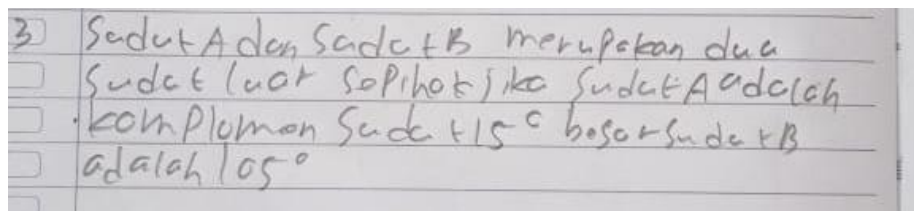 3 Sudut A dan Sudut B merupakan dua
Sudut luar Sepihak jika Sudut A adalah
komplemen Sudut 15° besar sudut B
adalah 105°